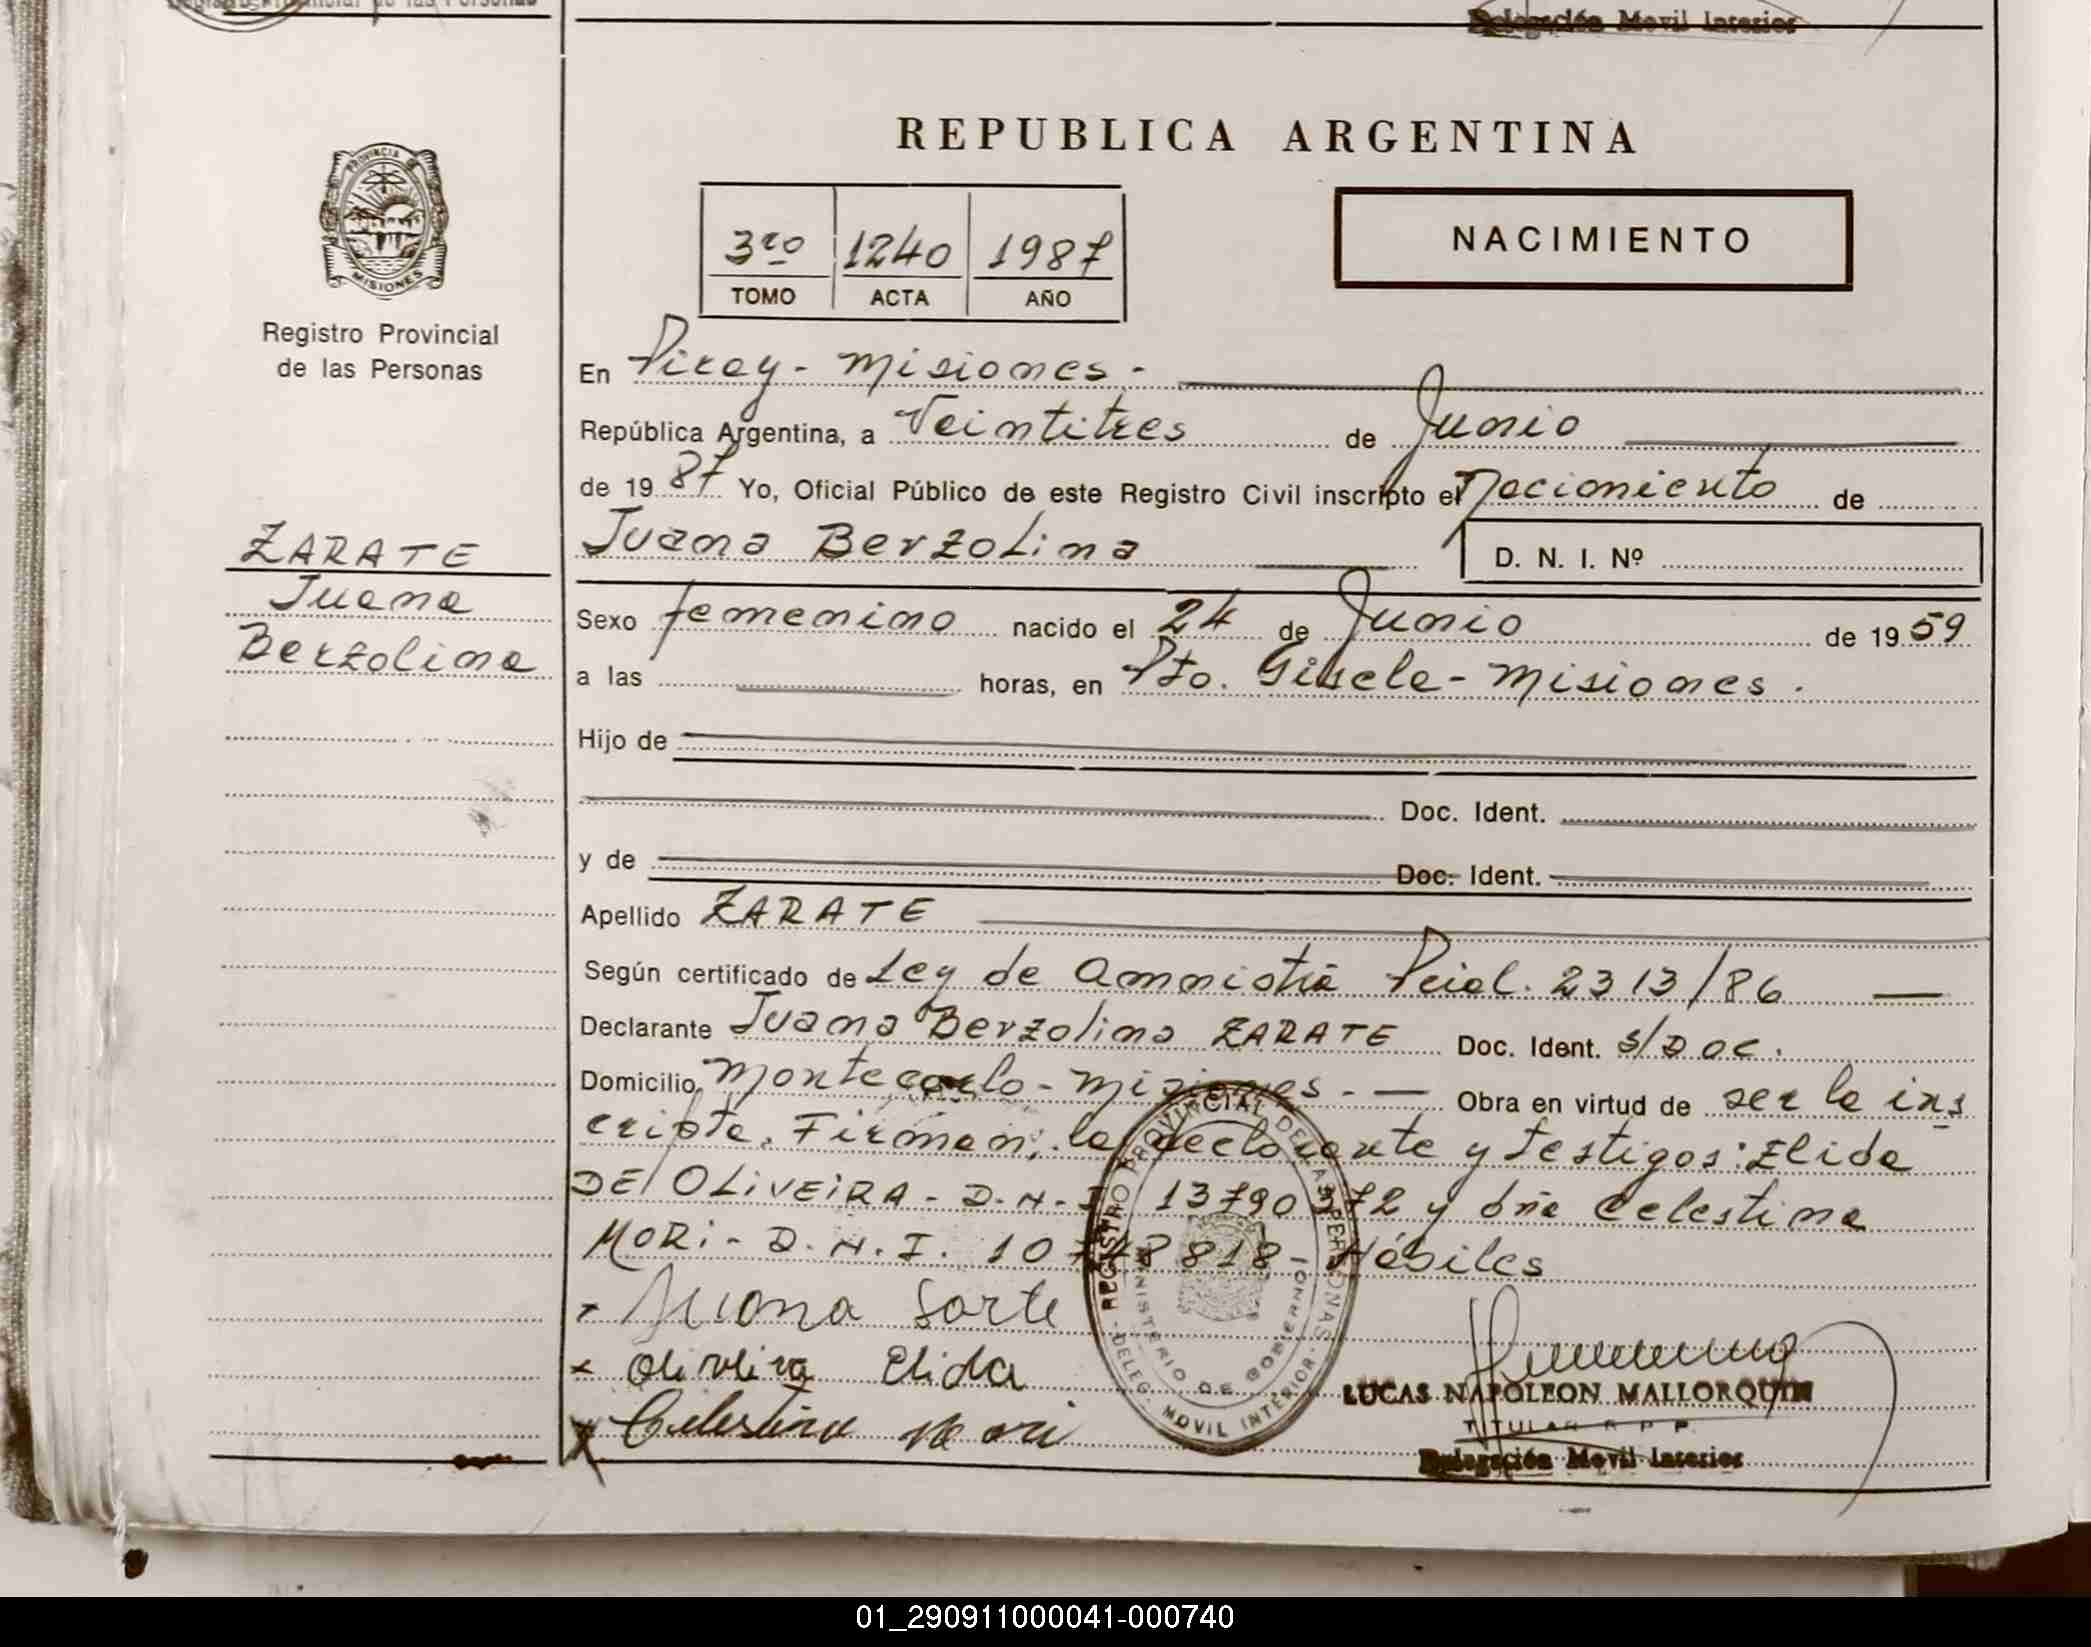 Registro Provincial de las Personas
Delegación Movil Interior
PROVINCIA DE
MISIONES
Registro Provincial
de las Personas
REPUBLICA ARGENTINA
3ro 1240 1987
TOMO ACTA AÑO
NACIMIENTO
En Piray - Misiones -
República Argentina, a Veintitres de Junio
de 1987 Yo, Oficial Público de este Registro Civil inscripto el Nacimiento de
ZARATE
Juana
Berzolina
Juana Berzolina
D. N. I. Nº
Sexo femenino nacido el 24 de Junio de 1959
a las horas, en Pto. Gisela - Misiones.
Hijo de
Doc. Ident.
y de Doc. Ident.
Apellido ZARATE
Según certificado de Ley de Amnistia Pcial. 2313/86 —
Declarante Juana Berzolina ZARATE Doc. Ident. s/Doc.
Domicilio Montecarlo - Misiones. — Obra en virtud de ser la ins
cripta. Firman, la declarante y testigos: Elida
DE OLIVEIRA - D.N.I 13790372 y dña Celestina
MORI - D.N.I. 10 818 - Hábiles
x Juana Sarte
x Oliveira Elida
x Celestina Mori
REGISTRO PROVINCIAL DE LAS PERSONAS
MINISTERIO DE GOBIERNO
- DELEG. MOVIL INTERIOR -
LUCAS NAPOLEON MALLORQUIN
TITULAR R P P
Delegación Movil Interior
01_290911000041-000740